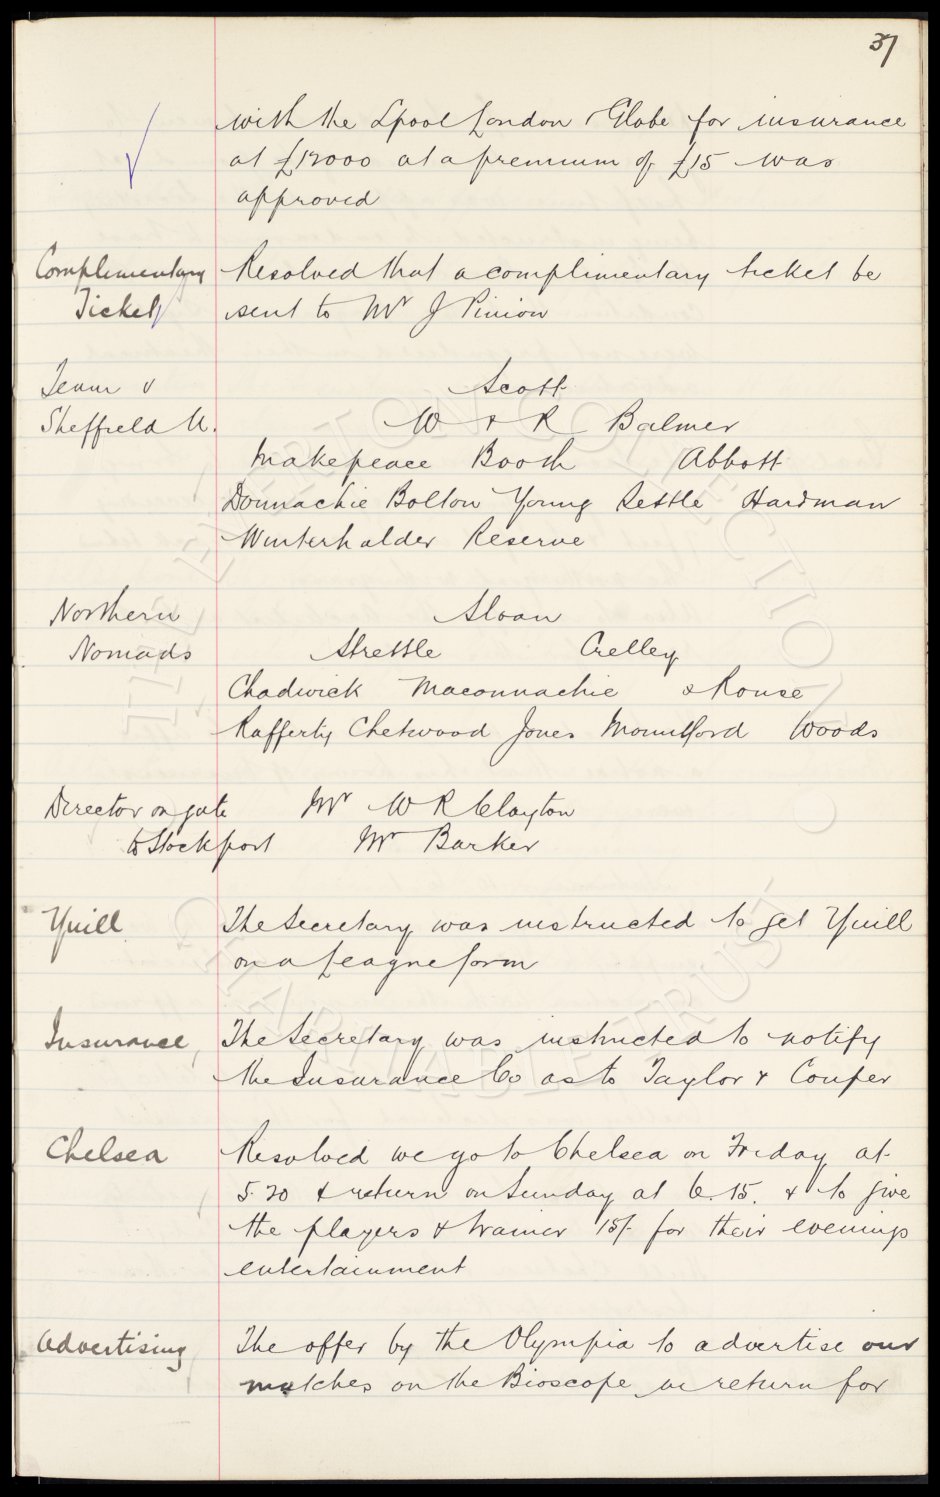 37
with the Lpool London & Globe for insurance
at £12000 at a premium of £15 was
approved
Complimentary Resolved that a complimentary ticket be
Ticket sent to Mr J Pinion
Team v Scott
Sheffield U. W & R Balmer
Makepeace Booth Abbott
Donnachie Bolton Young Settle Hardman
Winterhalder Reserve
Northern Sloan
Nomads Strettle Crelley
Chadwick Maconnachie & Rouse
Rafferty Chetwood Jones Mountford Woods
Director on gate Mr W R Clayton
to Stockport Mr Barker
Yuill The Secretary was instructed to get Yuill
on a League form
Insurance The Secretary was instructed to notify
the Insurance Co as to Taylor & Couper
Chelsea Resolved we go to Chelsea on Friday at
5.20 & return on Sunday at 6.15. & to give
the players & trainer 15/- for their evenings
entertainment
Advertising The offer by the Olympia to advertise our
matches on the Bioscope in return for
THE EVERTON COLLECTION
CHARITABLE TRUST